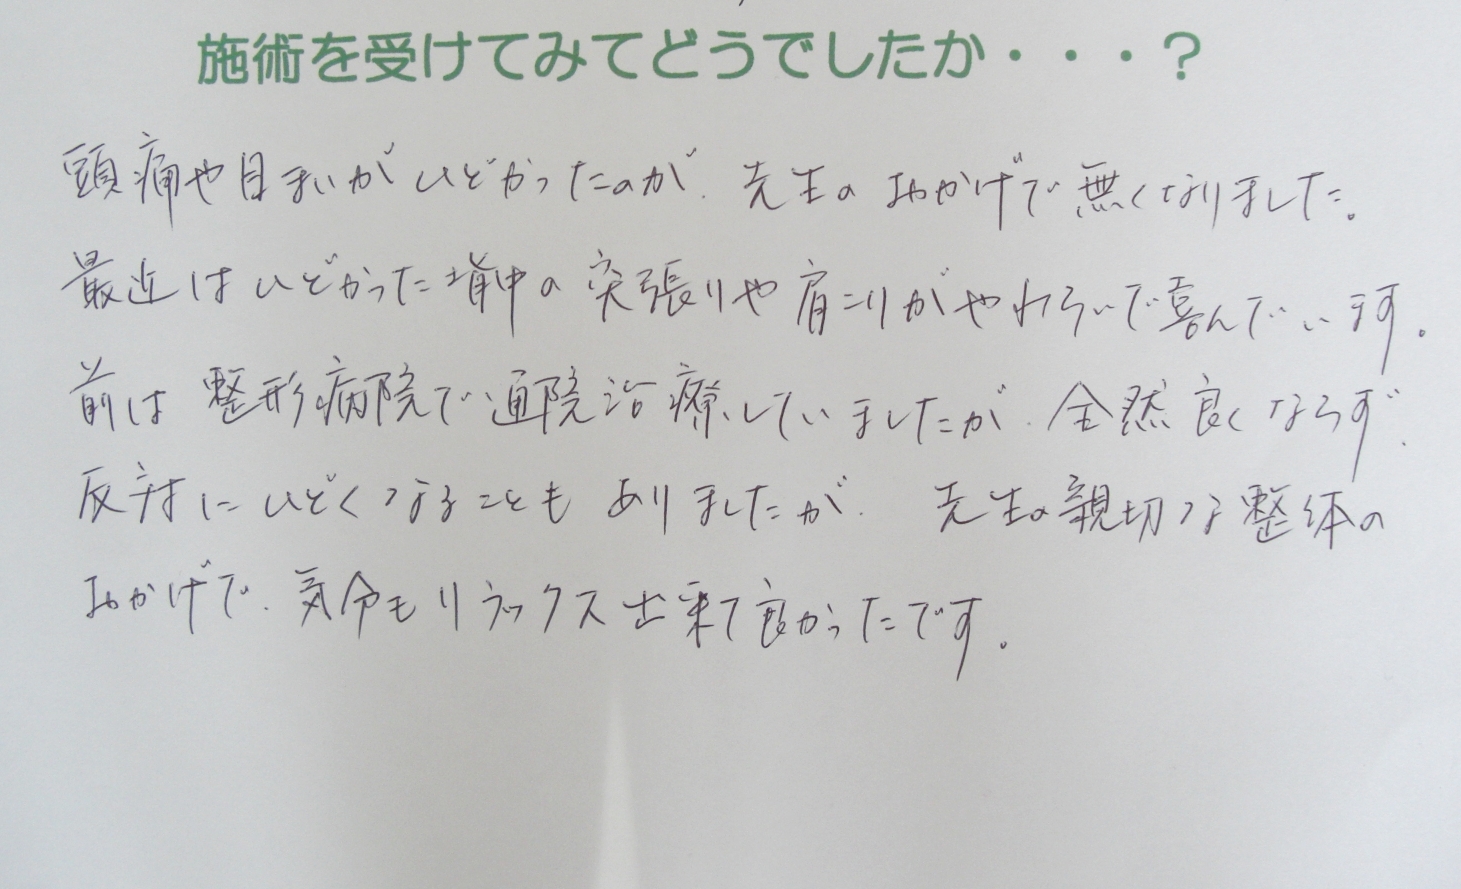 施術を受けてみてどうでしたか・・・？
頭痛や目まいがひどかったのが、先生のおかげで無くなりました。
最近はひどかった背中の突張りや肩こりがやわらいで喜んでいます。
前は整形病院で通院治療していましたが、全然良くならず、
反対にひどくなることもありましたが、先生の親切な整体の
おかげで、気分もリラックス出来て良かったです。